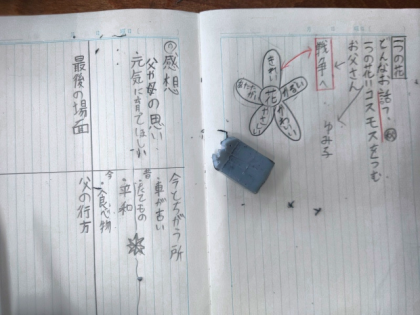 一つの花
どんなお話?
一つの花にコスモスをつむ
お父さん
戦争へ
ゆみ子
きれい
かわいい
花
感想
父や母の思い
元気に育てほしい
最後の場面
今とちがう所
・車が古い
昔
・たてもの
・平和
今
・食べ物
父の行方